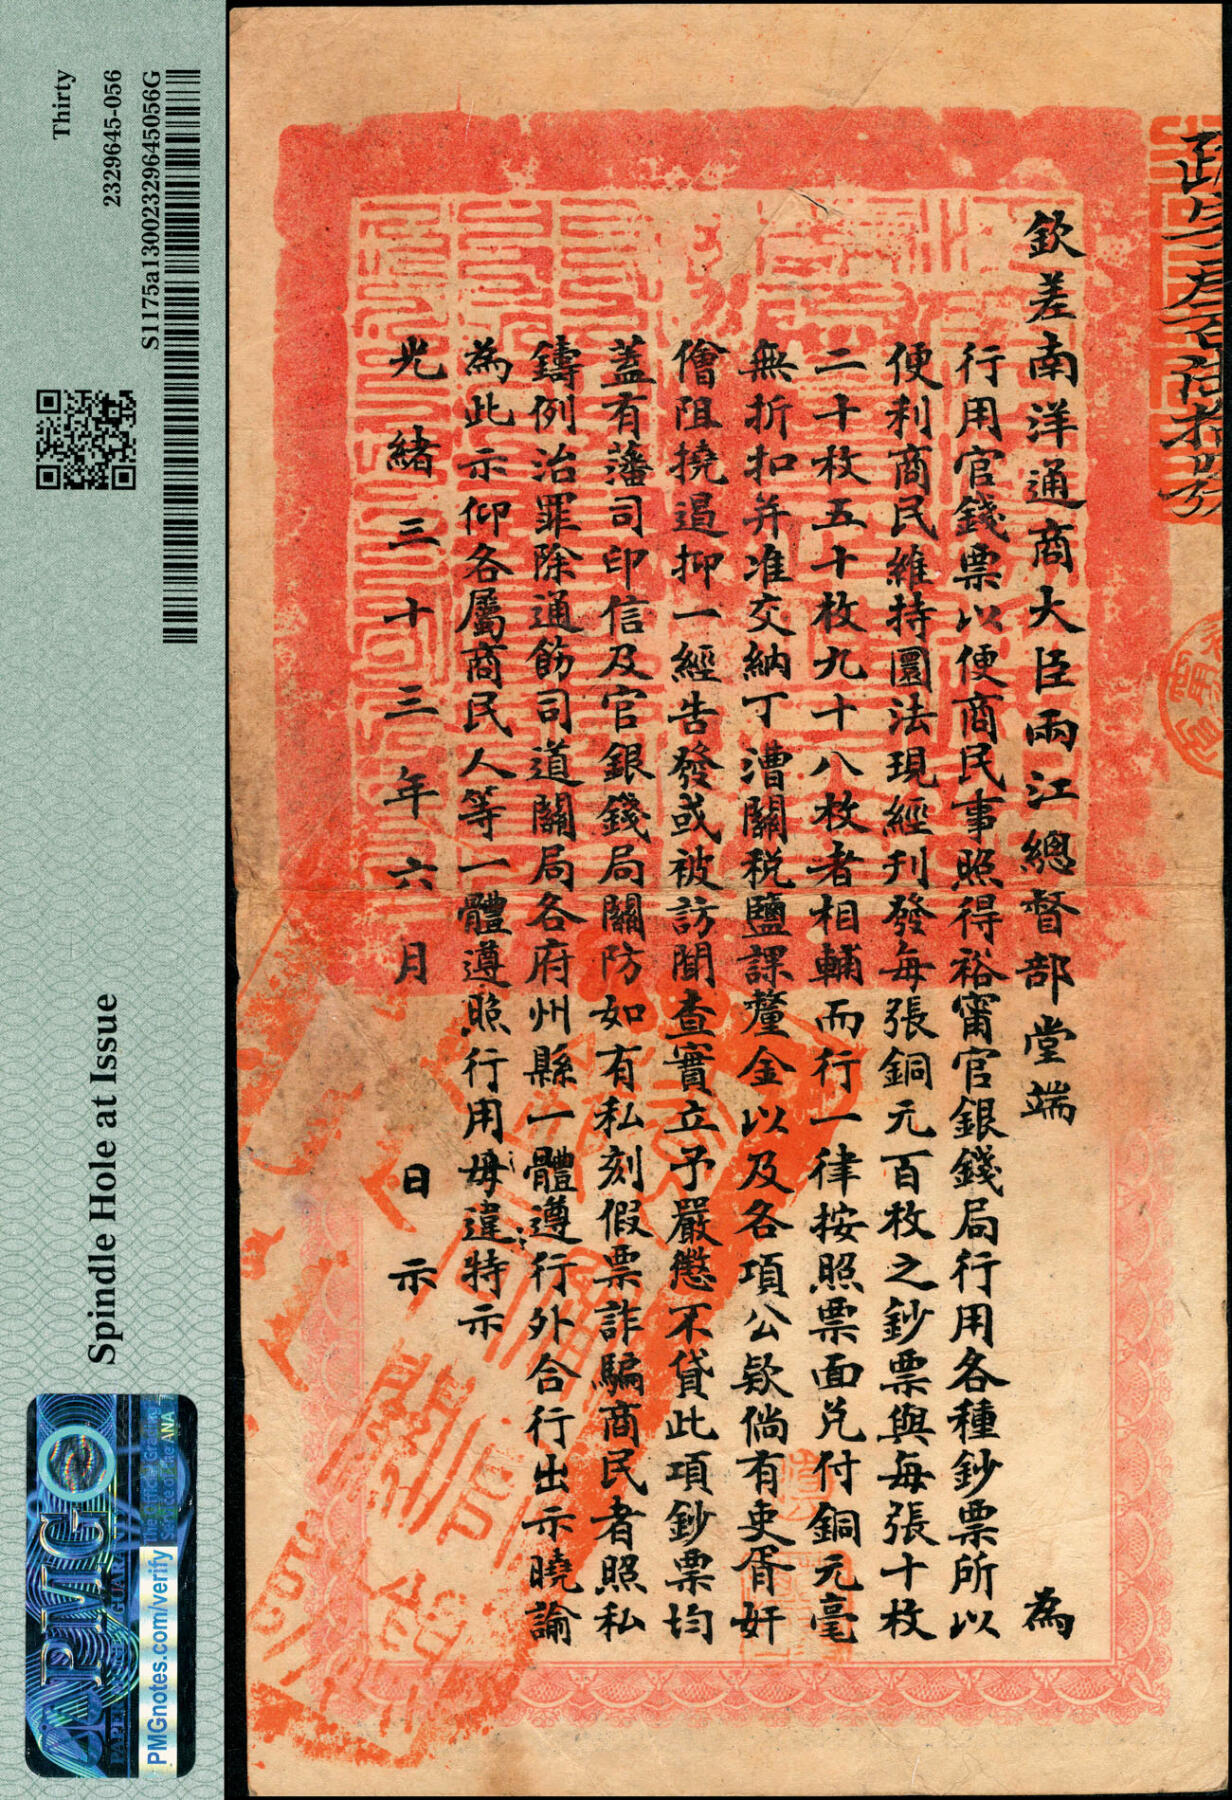 Thirty
2329645-056
S1175a13002329645056G
Spindle Hole at Issue
PMG
PMGnotes.com/verify
欽差南洋通商大臣兩江總督部堂端 為
行用官錢票以便商民事照得裕甯官銀錢局行用各種鈔票所以
便利商民維持圜法現經刊發每張銅元百枚之鈔票與每張十枚
二十枚五十枚九十八枚者相輔而行一律按照票面兑付銅元毫
無折扣并准交納丁漕關税鹽課釐金以及各項公欵倘有吏胥奸
儈阻撓遏抑一經告發或被訪聞查實立予嚴懲不貸此項鈔票均
蓋有藩司印信及官銀錢局關防如有私刻假票詐騙商民者照私
鑄例治罪除通飭司道關局各府州縣一體遵行外合行出示曉諭
為此示仰各屬商民人等一體遵照行用毋違特示
光緒三十三年六月 日示